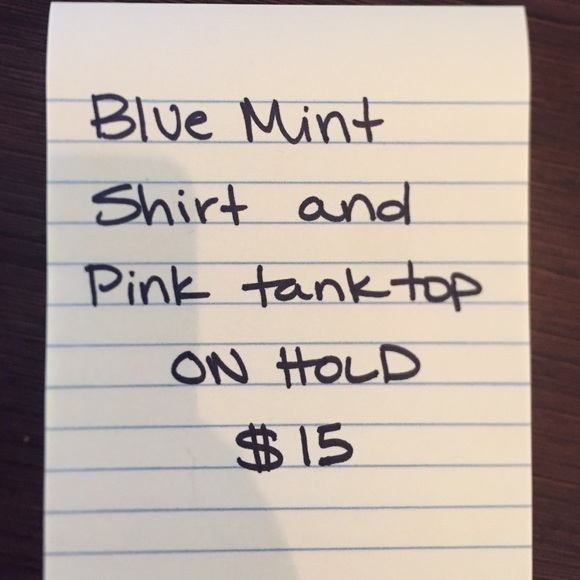 Blue Mint
Shirt and
Pink tank top
ON HOLD
$15